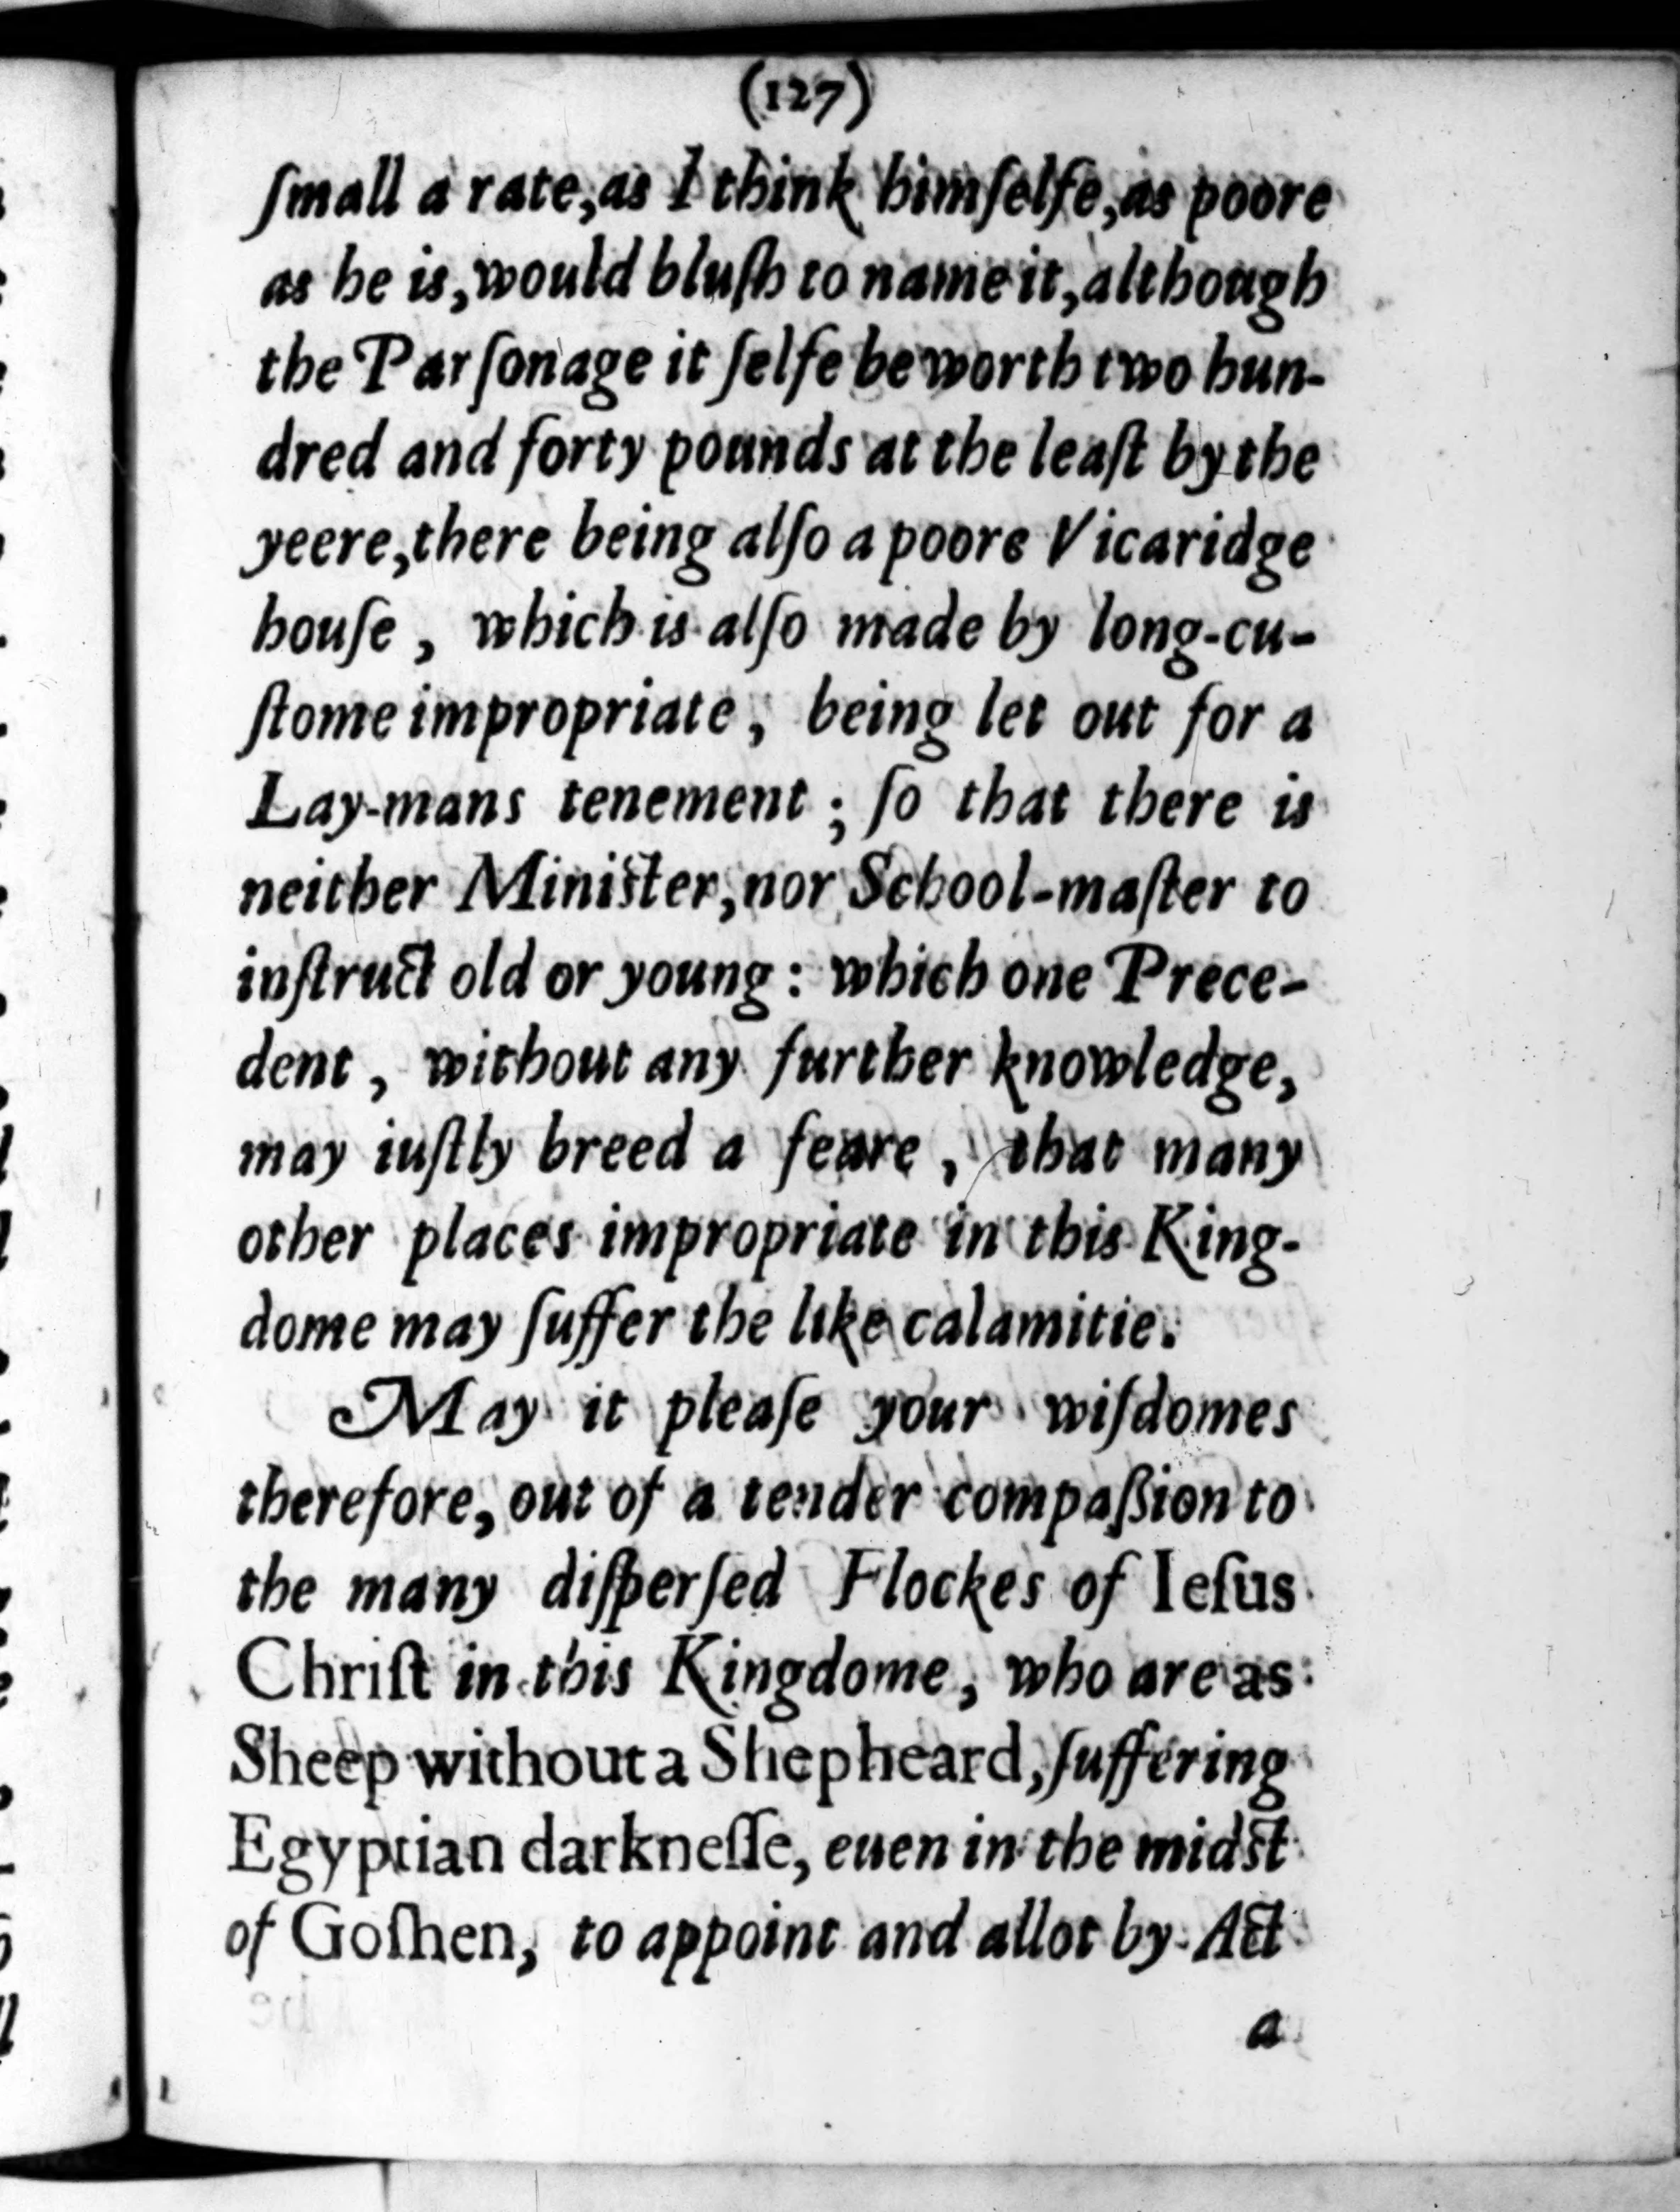 (127)
ſmall a rate, as I think himſelfe, as poore
as he is, would bluſh to name it, although
the Parſonage it ſelfe be worth two hun-
dred and forty pounds at the leaſt by the
yeere, there being alſo a poore Vicaridge
houſe, which is alſo made by long-cu-
ſtome impropriate, being let out for a
Lay-mans tenement; ſo that there is
neither Miniſter, nor School-maſter to
inſtruct old or young: which one Prece-
dent, without any further knowledge,
may iuſtly breed a feare, that many
other places impropriate in this King-
dome may ſuffer the like calamitie.
May it pleaſe your wiſdomes
therefore, out of a tender compaſsion to
the many diſperſed Flockes of Ieſus
Chriſt in this Kingdome, who are as
Sheep without a Shepheard, ſuffering
Egyptian darkneſſe, euen in the midſt
of Goſhen, to appoint and allot by Act
a